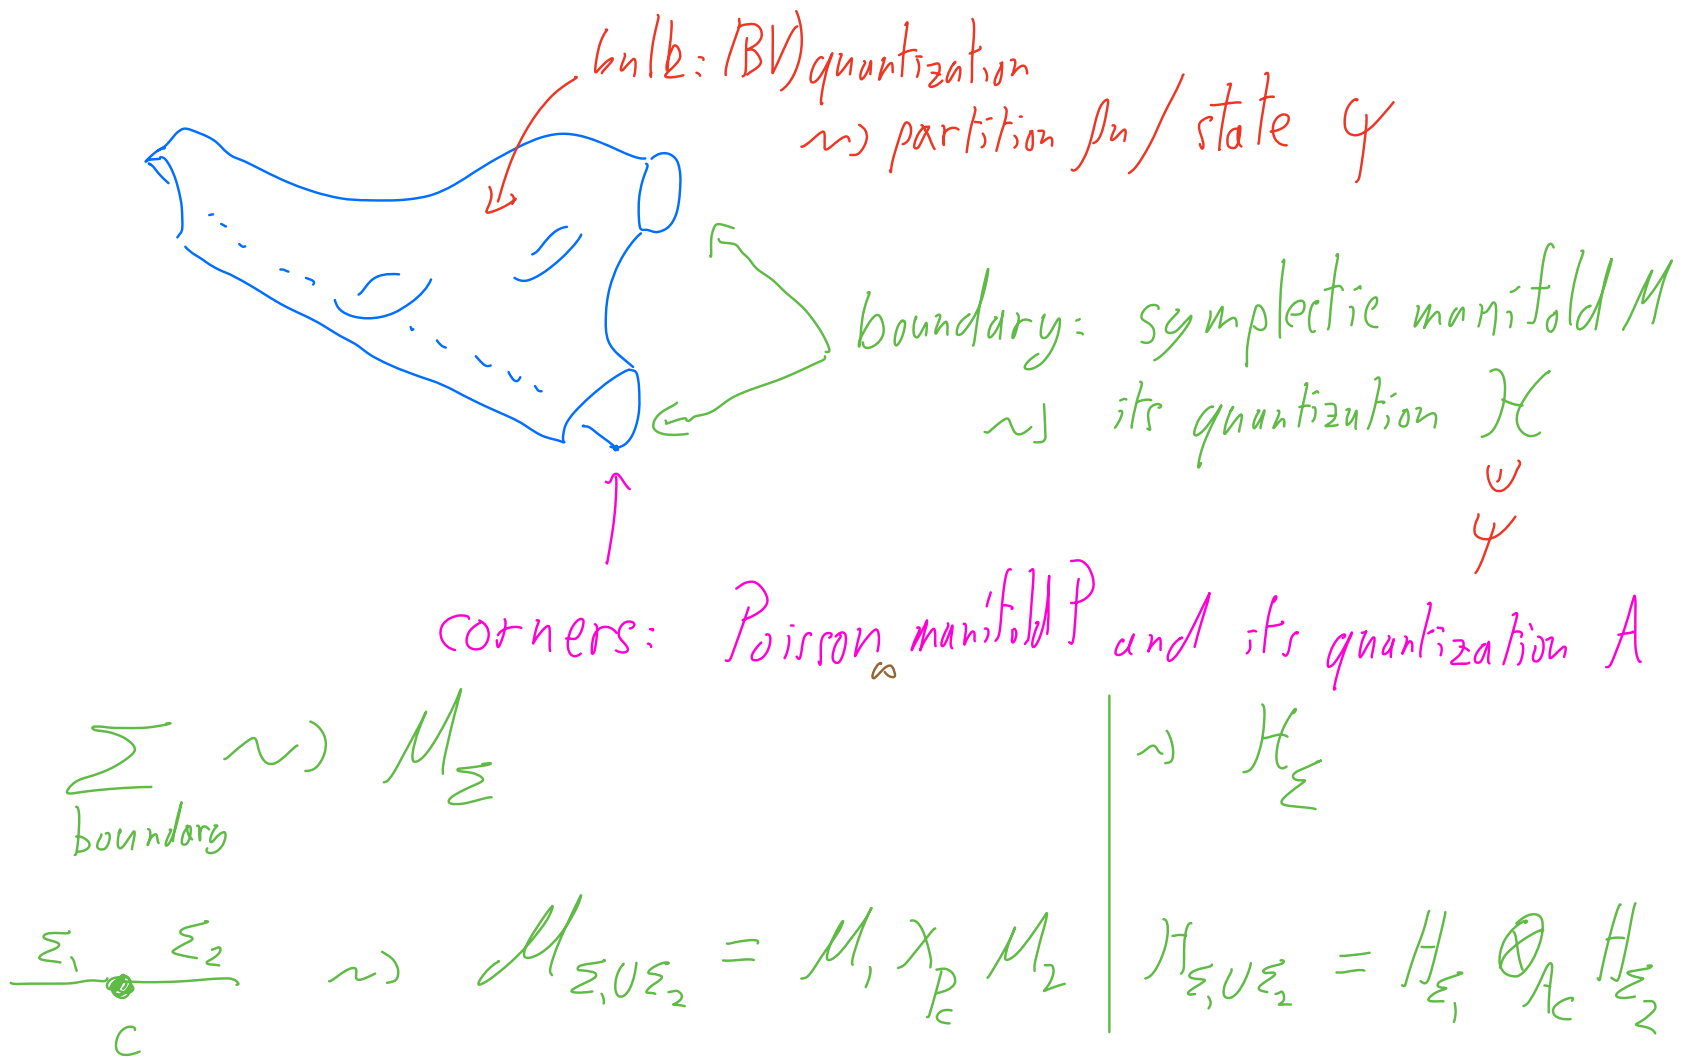 bulk: (BV) quantization
⇝ partition fn / state ψ
boundary: symplectic manifold M
⇝ its quantization H
∪
ψ
corners: Poisson∞ manifold P and its quantization A
Σ ⇝ M_Σ | ⇝ H_Σ
boundary
Σ₁ Σ₂ ⇝ M_{Σ₁∪Σ₂} = M₁ ×_{P_C} M₂ | H_{Σ₁∪Σ₂} = H_{Σ₁} ⊗_{A_C} H_{Σ₂}
C